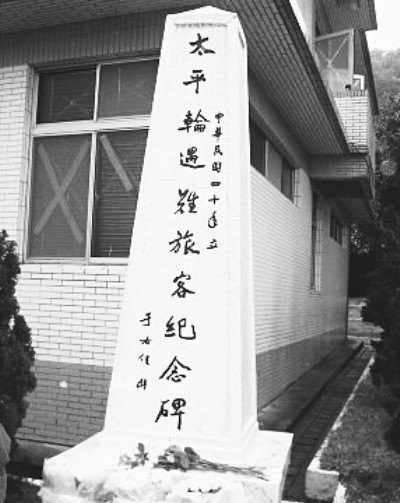 中華民國四十年立
太平輪遇難旅客紀念碑
于右任題